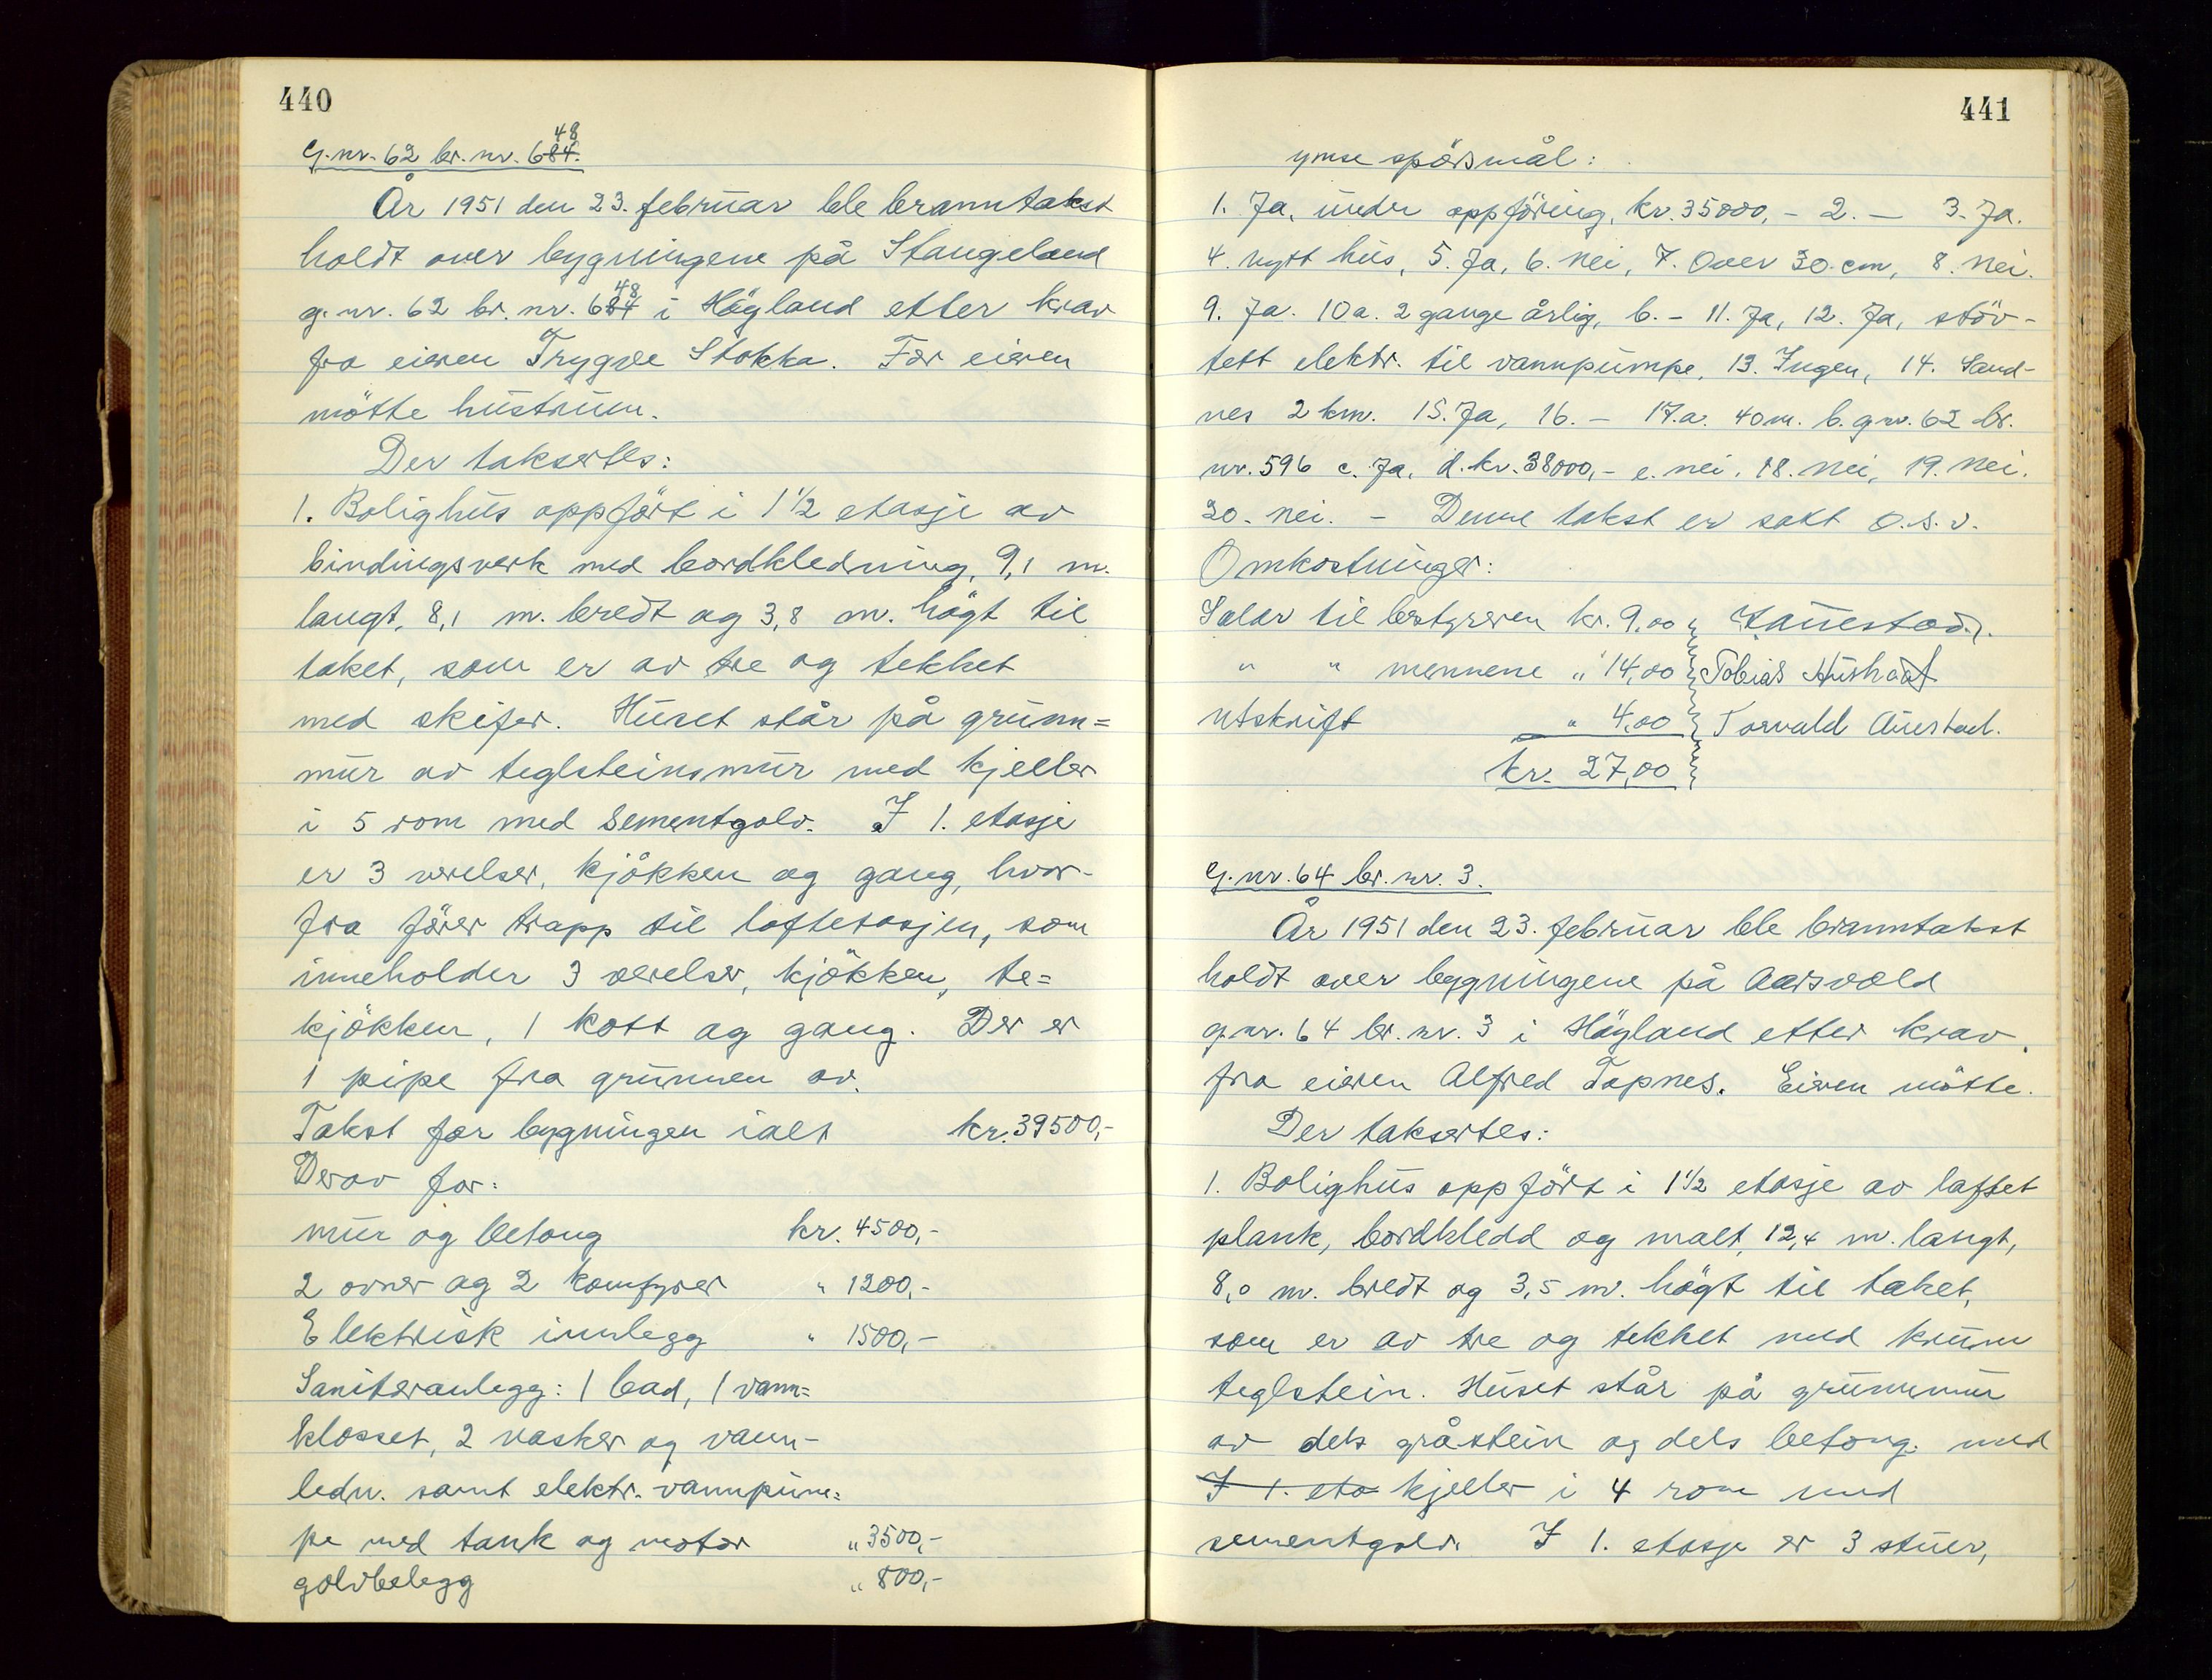 440
G.nr. 62 br. nr. 684. 48
År 1951 den 23. februar ble branntakst
holdt over bygningene på Stangeland
g.nr. 62 br. nr. 684 48 i Högland etter krav
fra eieren Trygve Stokka. For eieren
mötte hustruen.
Der taksertes:
1. Bolighus oppfört i 1 1/2 etasje av
bindingsverk med bordkledning, 9,1 m.
langt, 8,1 m. bredt og 3,8 m. högt til
taket, som er av tre og tekket
med skifer. Huset står på grunn=
mur av teglsteinsmur med kjeller
i 5 rom med sementgolv. I 1. etasje
er 3 verelser, kjökken og gang, hvor-
fra förer trapp til loftetasjen, som
inneholder 3 verelser, kjökken, te=
kjökken, 1 kott og gang. Der er
1 pipe fra grunnen av.
Takst for bygningen ialt kr. 39500,-
Derav for:
mur og betong kr. 4500,-
2 ovner og 2 komfyrer " 1200,-
Elektrisk innlegg " 1500,-
Saniteranlegg: 1 bad, 1 vann=
klosset, 2 vasker og vann-
ledn. samt elektr. vannpum=
pe med tank og motor " 3500,-
golvbelegg " 800,-
441
ymse spörsmål:
1. Ja, under oppföring, kr. 35000,- 2. — 3. Ja.
4. nytt hus, 5. Ja, 6. nei, 7. Over 30 cm, 8. nei.
9. Ja. 10a. 2 gange årlig, b. - 11. Ja, 12. Ja, stöv-
tett elektr. til vannpumpe, 13. Ingen, 14. Sand-
nes 2 km. 15. Ja, 16. — 17.a. 40 m. b. gnr. 62 br.
nr. 596 c. Ja, d. kr. 38000,- e. nei, 18. nei, 19. nei.
20. nei. - Denne takst er sakt o.s.v.
Omkostninger:
Salær til bestyreren kr. 9,00
" " mennene " 14,00 Tobias Husbadt
Utskrift " 4,00 Torvald Austad.
kr. 27,00
G.nr. 64 br. nr. 3.
År 1951 den 23. februar ble branntakst
holdt over bygningene på Aarsvold
g.nr. 64 br. nr. 3 i Högland etter krav
fra eieren Alfred Topnes. Eieren mötte.
Der taksertes:
1. Bolighus oppfört i 1 1/2 etasje av laftet
plank, bordkledd og malt, 12,4 m. langt,
8,0 m. bredt og 3,5 m. högt til taket,
som er av tre og tekket med krum
teglstein. Huset står på grunnmur
av dels gråstein og dels betong. med
I 1. eta kjeller i 4 rom med
sementgolv. I 1. etasje er 3 stuer,